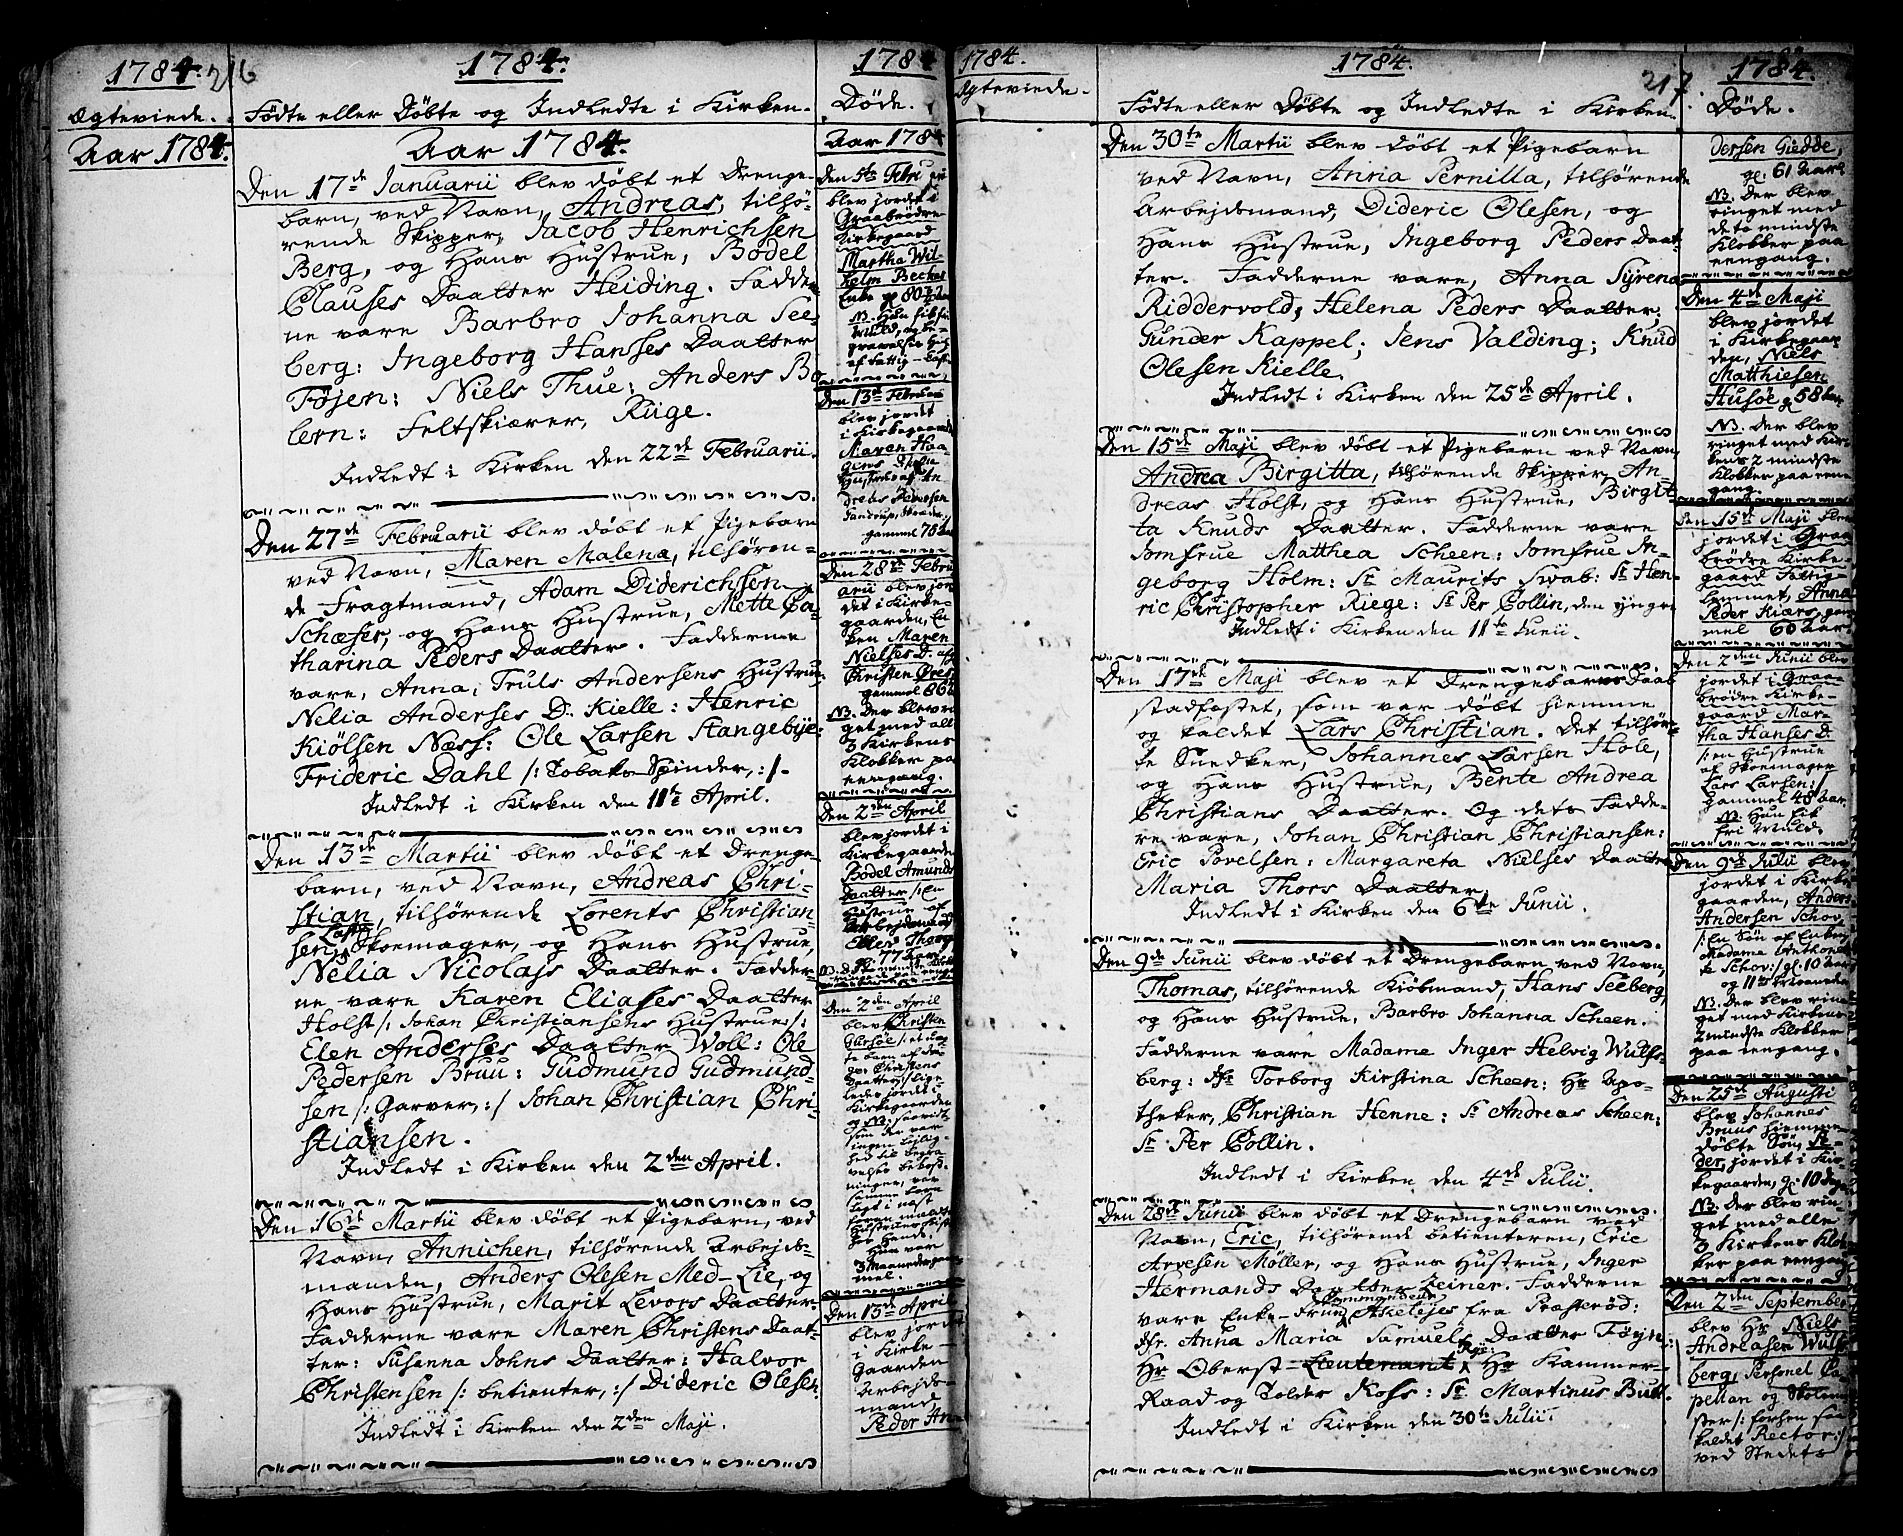 1784. 216
Ægteviede.
Aar 1784.
1784.
Födte eller Döbte og Indledte i Kirken.
Aar 1784.
Den 17de Januarii blev döbt et Drenge-
barn, ved Navn, Andreas, tilhö-
rende Skipper, Jacob Henrichsen
Berg, og Hans Hustrue, Bodel
Clauses Daatter Heiding. Fadder-
ne vare Barbro Johanna See-
berg: Ingeborg Hansses Daatter
Föjen: Niels Thue: Anders Bo
lern: Feltskiærer, Rüge.
Indledt i Kirken den 22de Februarii.
Den 27de Februarii blev döbt et Pigebarn
ved Navn, Maren Malena, tilhören-
de Fragtmand, Adam Diderichsen
Schæfer, og Hans Hustrue, Mette Ca-
tharina Peders Daatter. Fadderne
vare, Anna, Truls Andersens Hustrue,
Nelia Anderses D. Kielle: Henric
Kiölsen Næss: Ole Larsen Stangebÿe:
Frideric Dahl /: Tobaks-Spinder, :/.
Indledt i Kirken den 11te April.
Den 13de Martii blev döbt et Drenge-
barn, ved Navn, Andreas Chri-
stian, tilhörende Lorents Christian-
sen, Skoemager, og Hans Hustrue,
Nelia Nicolajs Daatter. Fadder-
ne vare Karen Eliases Daatter
Holst /: Johan Christiansens Hustrue :/:
Elen Anderses Daatter Woll: Ole
Pedersen Bruu: Gudmund Gudmund-
sen /: Garver, :/ Johan Christian Chri-
stiansen.
Indledt i Kirken den 2den April.
Den 16de Martii blev döbt et Pigebarn, ved
Navn, Annichen, tilhörende Arbejds-
manden, Anders Olesen Med-Lie, og
Hans Hustrue, Marit Levors Daatter.
Fadderne vare Maren Christens Daat-
ter: Susanna Johns Daatter: Halvor
Christensen /: betienter, :/ Dideric Olesen.
Indledt i Kirken den 2den Maji.
1784
Döde.
Aar 1784
Den 5te Febru
blev jordet i
Graabrödre
Kirkegaard
Martha Wil-
helm Beckers
Enke gl. 80
Den 13de Februarii
blev jordet
i Kirkegaarden
Maren Haa
gens
Hustrue af An
dreas Pedersen
gammel 78
Den 28de Febru
arii blev jor
det i Kirke-
gaarden, En
ken Maren
Nielses D. af
Christen
gammel 86
NB. Der blev rin
get med alle
3 Kirkens
Klokker paa
eengang.
Den 2den April
blev jordet i
Kirkegaarden
Bodel Amunds
Daatter /: En
Hustrue af
Arbejdsmand
gl. 77 Aar
Den 2den April
blev Christen
Kirkegaarden
3 Maaneder gam
mel.
Den 13de April
blev jordet
i Kirke-
Gaarden
Arbejds-
mand,
Peder An-
1784.
Ægteviede.
1784.
217.
Födte eller Döbte og Indledte i Kirken.
Den 30te Martii blev döbt et Pigebarn
ved Navn, Anna Pernilla, tilhörende
Arbejdsmand, Dideric Olesen, og
Hans Hustrue, Ingeborg Peders Daat-
ter. Fadderne vare, Anna Syrena
Riddervold; Helena Peders Daatter;
Gunder Kappel; Jens Valding; Knud
Olesen Kielle.
Indledt i Kirken den 25de April.
Den 15de Maji blev döbt et Pigebarn ved Navn,
Andrea Birgitta, tilhörende Skipper, An-
dreas Holst, og Hans Hustrue, Birgit-
ta Knuds Daatter. Fadderne vare
Jomfrue Matthea Scheen: Jomfrue In-
geborg Holm: Sr. Maurits Swab: Sr. Hen-
ric Christopher Riege: Sr. Per Collin, den yngre
Indledt i Kirken den 11te Junii.
Den 17de Maji blev et Drengebarns Daab
stadfæstet, som var döbt hiemme
og kaldet Lars Christian. Det tilhör-
te Snedker, Johannes Larsen Hole,
og Hans Hustrue, Bente Andrea
Christians Daatter. Og dets Fadde-
re vare, Johan Christian Christiansen:
Eric Povelsen: Margareta Nielses Daatter
Maria Thors Daatter.
Indledt i Kirken den 6te Junii.
Den 9de Junii blev döbt et Drengebarn ved Navn,
Thomas, tilhörende Kiöbmand, Hans Seeberg,
og Hans Hustrue, Barbro Johanna Scheen.
Fadderne vare Madame Inger Helvig Wulfs-
berg: Jfr. Torborg Kirstina Scheen: Hr. Apo-
theker, Christian Henne: Sr. Andreas Scheen:
Sr. Per Collin.
Indledt i Kirken den 4de Julii.
Den 28de Junii blev döbt et Drengebarn ved
Navn, Eric, tilhörende betienteren, Eric
Arvesen Möller, og Hans Hustrue, Inger
Hermands Daatter Zeiner. Fadderne
vare Enke-Frue Askeløjes fra Præsteröd:
Jfr. Anna Maria Samuels Daatter Föyn:
Hr. Oberst-Lieutenant, Hr. Kammer-
Raad og Tolder Koss: Sr. Martinus Bull.
Indledt i Kirken den 30te Julii.
1784.
Döde.
dersen Giedde,
gl. 61 Aar
NB. Der blev
ringet med
dets mindste
Klokker paa
eengang.
Den 4de Maji
blev jordet
i Kirkegaar
den, Niels
Matthiesen
Husöe gl. 58 Aar
NB. Der blev
ringet med Kir-
kens 2 mindste
Klokker paa een
gang.
Den 15de Maji blev
jordet i Graa
brödre Kirke-
gaard Fattig-
lemmet, Anna
Peder Kiærs, gam
mel 60 Aar.
Den 2den Junii blev
jordet i Graa-
brödre Kirke-
gaard Mar-
tha Hanses D.
/: en Hustrue
af Skoemager
Lars Larsen :/
gammel 48 Aar.
NB. Hun fik
fri Muld.
Den 9de Julii blev
jordet i Kirke
gaarden, Anders
Andersen Schov,
/: En Sön af Enken
Madame Anthonet-
te Schov :/ gl. 10 Aar
og 11te Maaneder
NB. Der blev rin
get med Kirkens
2 mindste Klokker
paa eengang.
Den 25de Augusti
blev Johannes
Bruus hiemme
döbte Sön, Pe-
der, jordet i Kir-
kegaarden, gl. 10 Dage
NB. Der blev rin-
get med alle
3 Kirkens Klok-
ker paa eengang
Den 2den September
blev Hr. Niels
Andreasen Wulfs
berg, Personel Ca
pellan og Skolme
ster /: forhen saa
kaldet Rector :/
ved Stedets